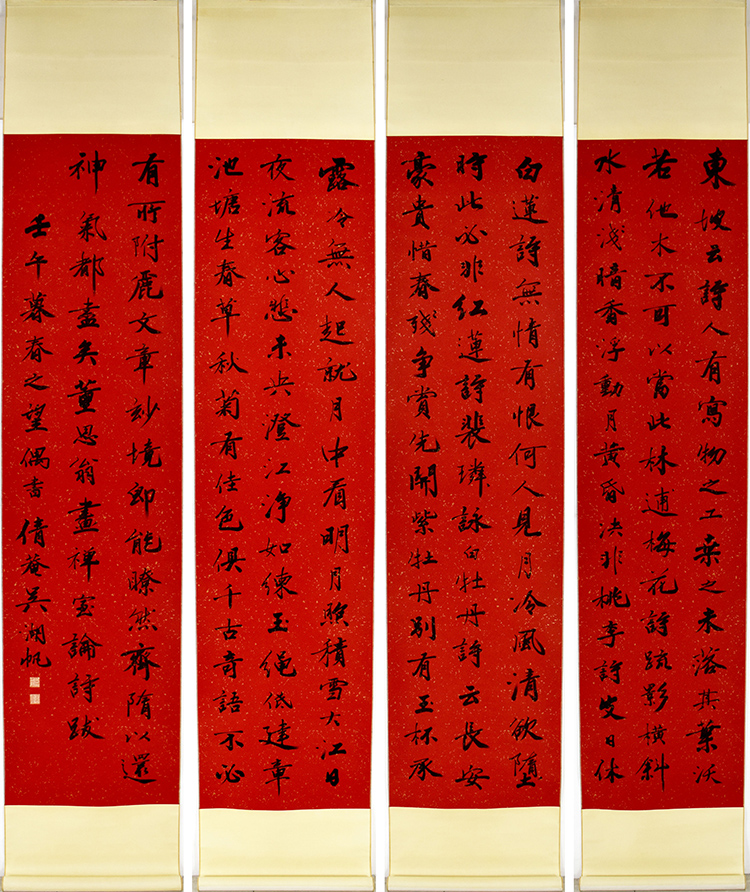 東坡云詩人有寫物之工桑之未落其葉沃
若他木不可以當此林逋梅花詩疏影橫斜
水清淺暗香浮動月黃昏決非桃李詩皮日休
白蓮詩無情有恨何人見月冷風清欲墮
時此必非紅蓮詩裴璘詠白牡丹詩云長安
豪貴惜春殘爭賞先開紫牡丹別有玉杯承
露冷無人起就月中看明月照積雪大江日
夜流客心悲未央澄江淨如練玉繩低建章
池塘生春草秋菊有佳色俱千古奇語不必
有所附麗文章妙境即能瞭然齊隋以還
神氣都盡矣董思翁畫禪室論詩跋
壬午暮春之望偶書倩菴吳湖帆